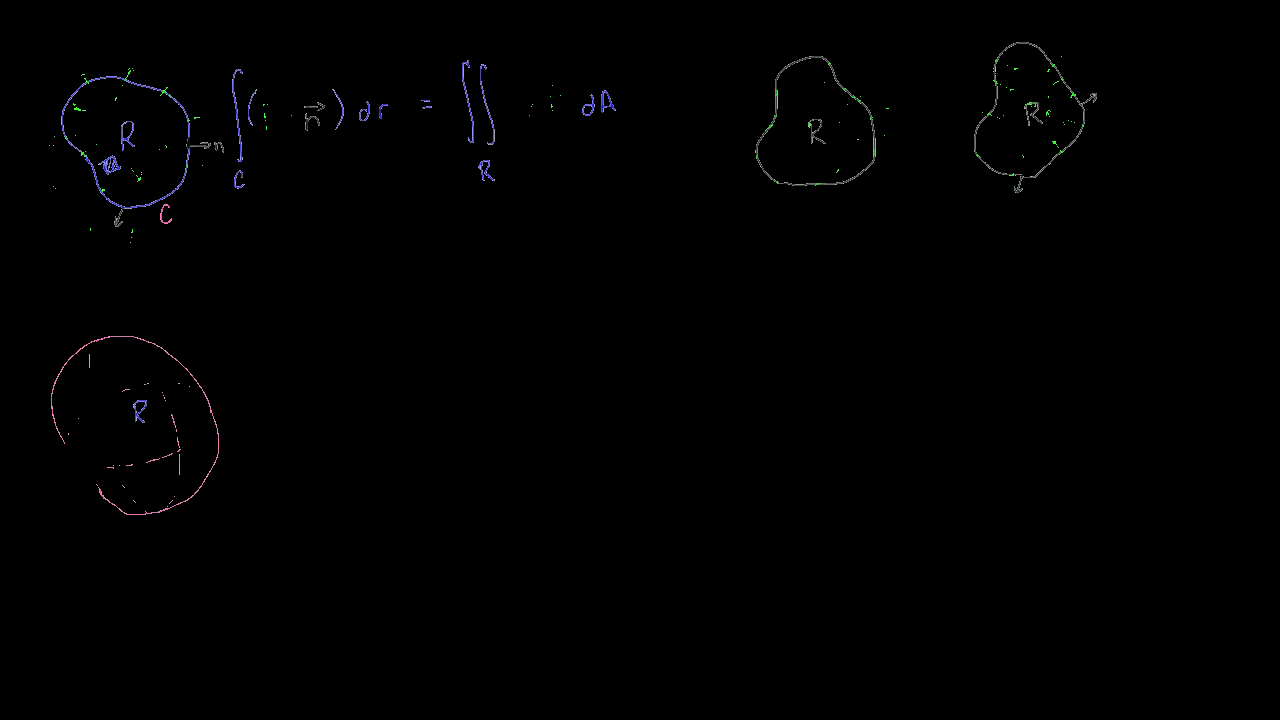 R
n
C
∫_C ( · n⃗ ) dr = ∬_R dA
R
R
R